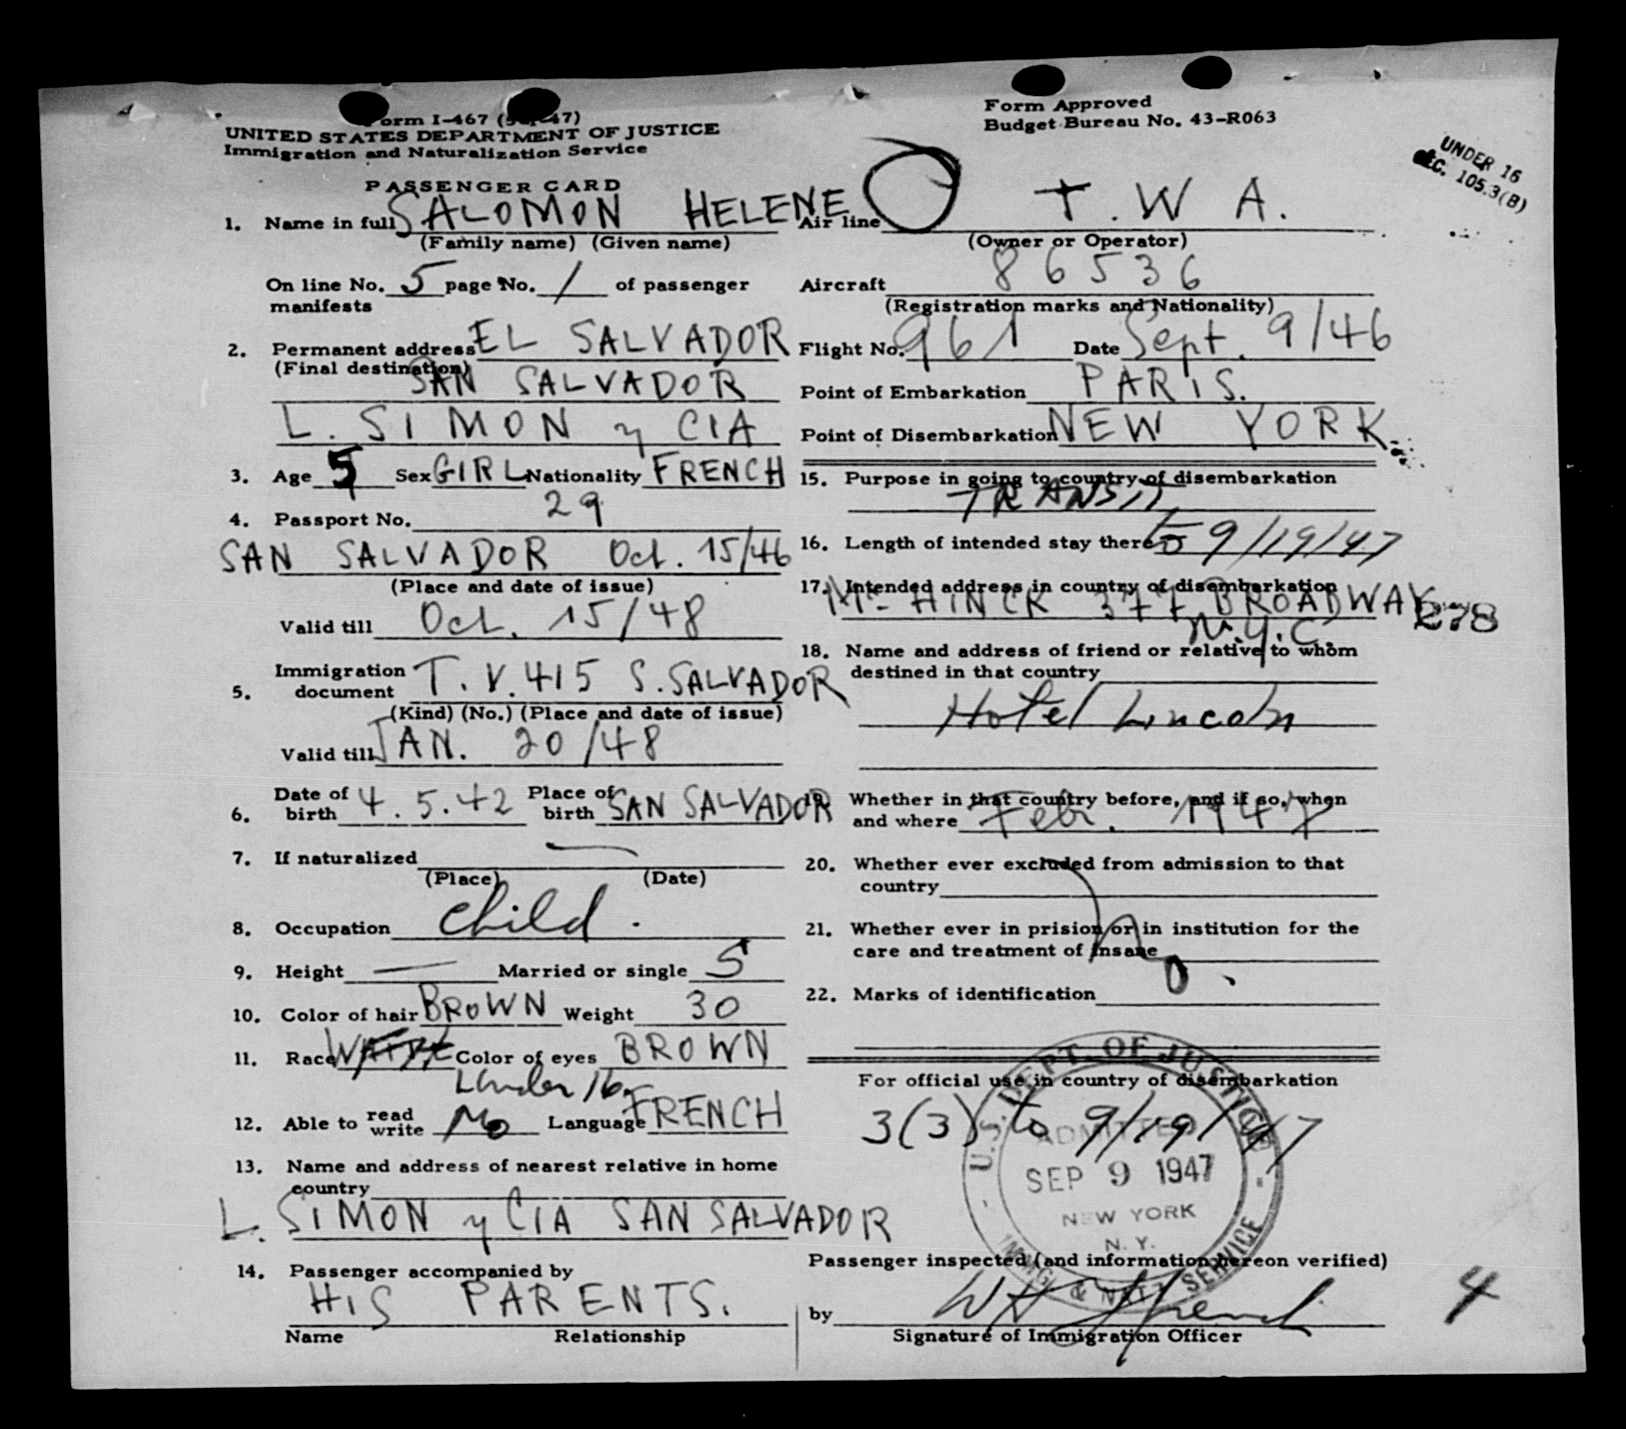 Form I-467 (        47)
UNITED STATES DEPARTMENT OF JUSTICE
Immigration and Naturalization Service
Form Approved
Budget Bureau No. 43-R063
UNDER 16
SEC. 105.3(B)
PASSENGER CARD
1. Name in full SALOMON HELENE
(Family name) (Given name)
On line No. 5 page No. 1 of passenger
manifests
2. Permanent address EL SALVADOR
(Final destination) SAN SALVADOR
L. SIMON y CIA
3. Age 5 Sex GIRL Nationality FRENCH
4. Passport No. 29
SAN SALVADOR Oct. 15/46
(Place and date of issue)
Valid till Oct. 15/48
5. Immigration document T.V. 415 S. SALVADOR
(Kind) (No.) (Place and date of issue)
Valid till JAN. 20/48
6. Date of birth 4.5.42 Place of birth SAN SALVADOR
7. If naturalized —
(Place) (Date)
8. Occupation child.
9. Height — Married or single S
10. Color of hair BROWN Weight 30
11. Race WHITE Color of eyes BROWN
Under 16
12. Able to read write No Language FRENCH
13. Name and address of nearest relative in home
country
L. SIMON y CIA SAN SALVADOR
14. Passenger accompanied by
HIS PARENTS.
Name Relationship
Air line T.W A.
(Owner or Operator)
Aircraft 86536
(Registration marks and Nationality)
Flight No. 961 Date Sept. 9/46
Point of Embarkation PARIS.
Point of Disembarkation NEW YORK.
15. Purpose in going to country of disembarkation
TRANSIT
16. Length of intended stay there to 9/19/47
17. Intended address in country of disembarkation
Mr HINCK 377 BROADWAY 278
N.Y.C.
18. Name and address of friend or relative to whom
destined in that country
Hotel Lincoln
19. Whether in that country before, and if so, when
and where Febr. 1947
20. Whether ever excluded from admission to that
country
21. Whether ever in prision or in institution for the
care and treatment of insane
no.
22. Marks of identification
For official use in country of disembarkation
3(3) to 9/19/47
U.S. DEPT. OF JUSTICE
ADMITTED
SEP 9 1947
NEW YORK
N. Y.
IMMIG. & NATZ. SERVICE
Passenger inspected (and information hereon verified)
by
Signature of Immigration Officer
4